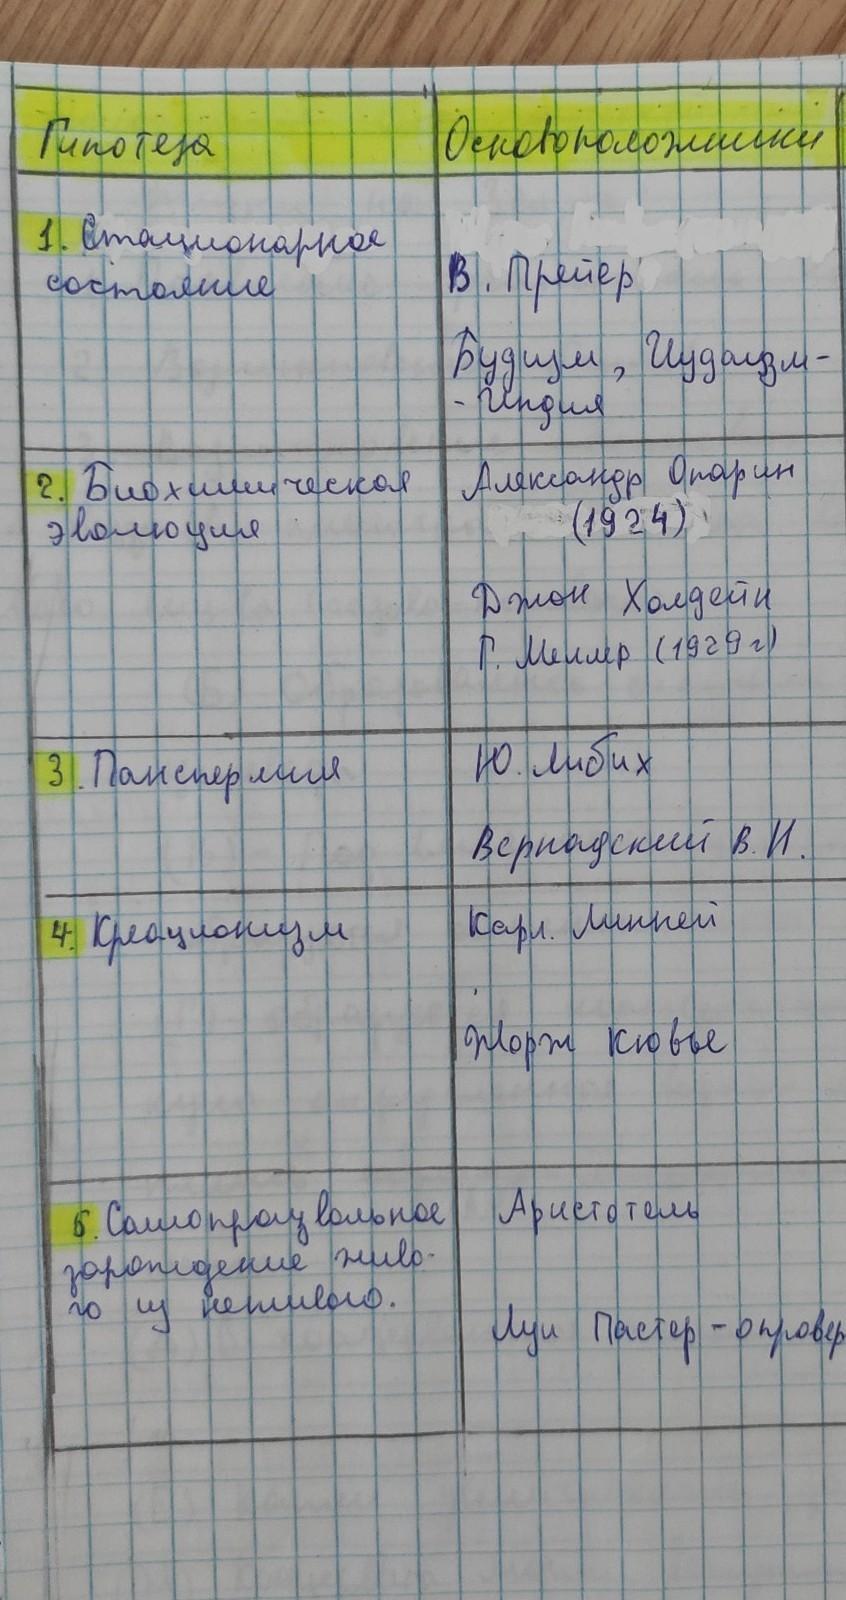 Гипотеза
Основоположники
1. Стационарное
состояние
В. Прейер
Будизм, Иудаизм-
- Индия
2. Биохимическая
эволюция
Александр Опарин
(1924)
Джон Холдейн
Г. Меллер (1929г)
3. Панспермия
Ю. Либих
Вернадский В. И.
4. Креационизм
Карл. Линней
Жорж Кювье
5. Самопроизвольное
зарождение живо-
го из неживого.
Аристотель
Луи Пастер - опровер